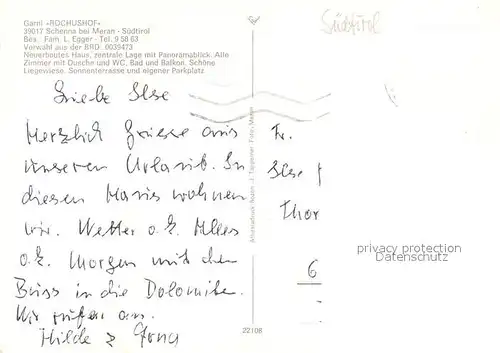 Garni »ROCHUSHOF«
39017 Schenna bei Meran - Südtirol
Bes. Fam. L. Egger - Tel. 9 58 63
Vorwahl aus der BRD: 0039473
Neuerbautes Haus, zentrale Lage mit Panoramablick. Alle
Zimmer mit Dusche und WC, Bad und Balkon. Schöne
Liegewiese. Sonnenterrasse und eigener Parkplatz
Südtirol
Liebe Ilse
Herzlich Grüsse aus
unserem Urlaub. In
diesem Haus wohnen
wir. Wetter o.k. Alles
o.k. Morgen mit dem
Bus in die Dolomiten.
Wir rufen an.
Hilde
Fr.
Ilse
Thor
6
22108
privacy protection
Datenschutz